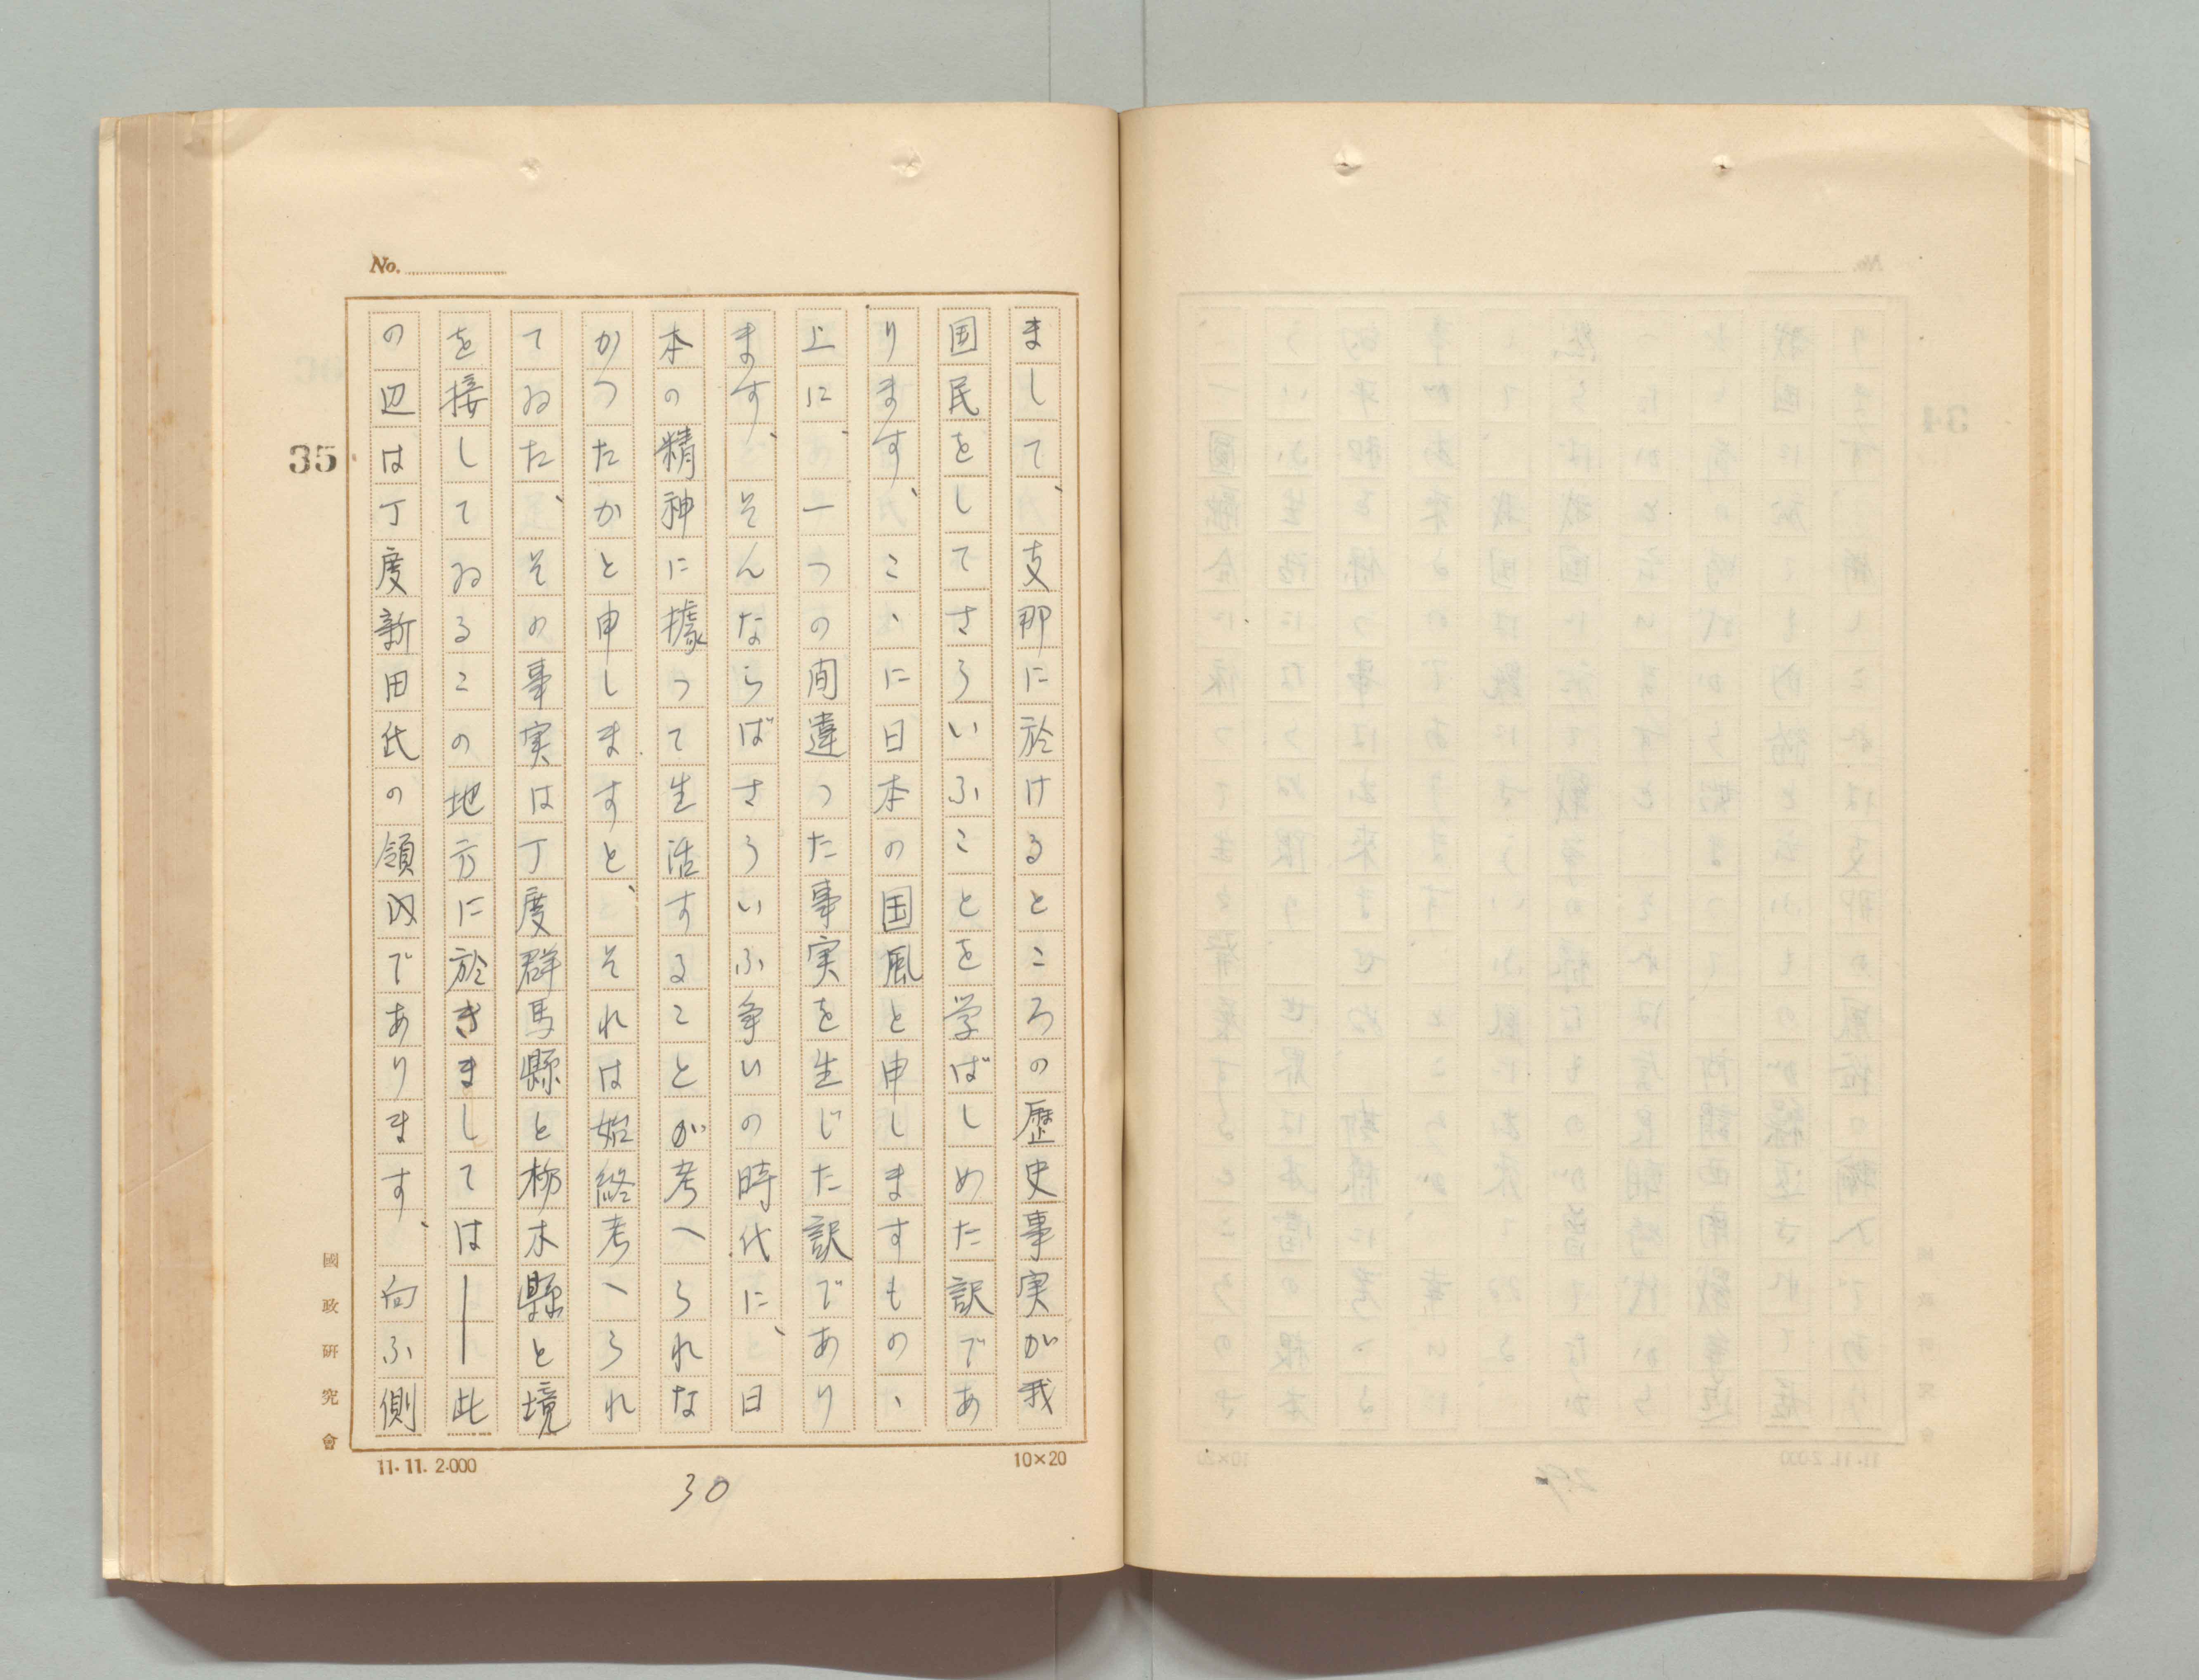 No.
まして、支那に於けるところの歴史事実が我
国民をしてさういふことを学ばしめた訳であ
ります、こゝに日本の国風と申しますものゝ
上に、一つの間違つた事実を生じた訳であり
ます、そんならばさういふ争いの時代に、日
本の精神に據つて生活することが考へられな
かつたかと申しますと、それは始終考へられ
てゐた、その事実は丁度群馬縣と栃木縣と境
を接してゐるこの地方に於きましては――此
の辺は丁度新田氏の領内であります、向ふ側
35
國政研究會
11.11.2.000
10×20
30